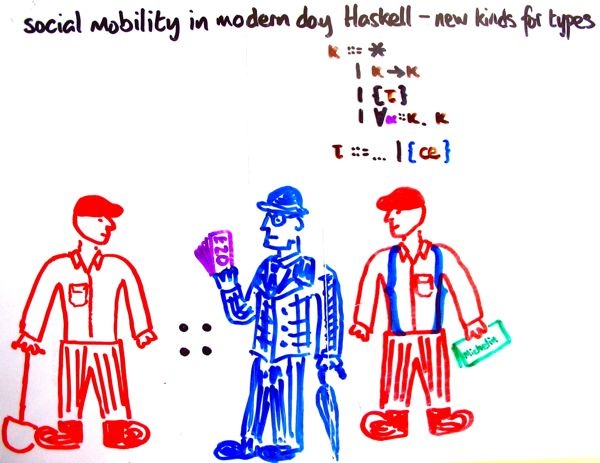 social mobility in modern day Haskell - new kinds for types
κ ::= *
| κ → κ
| {τ}
| ∀α::κ. κ
τ ::= ... | {ce}
£20
::
Michelin